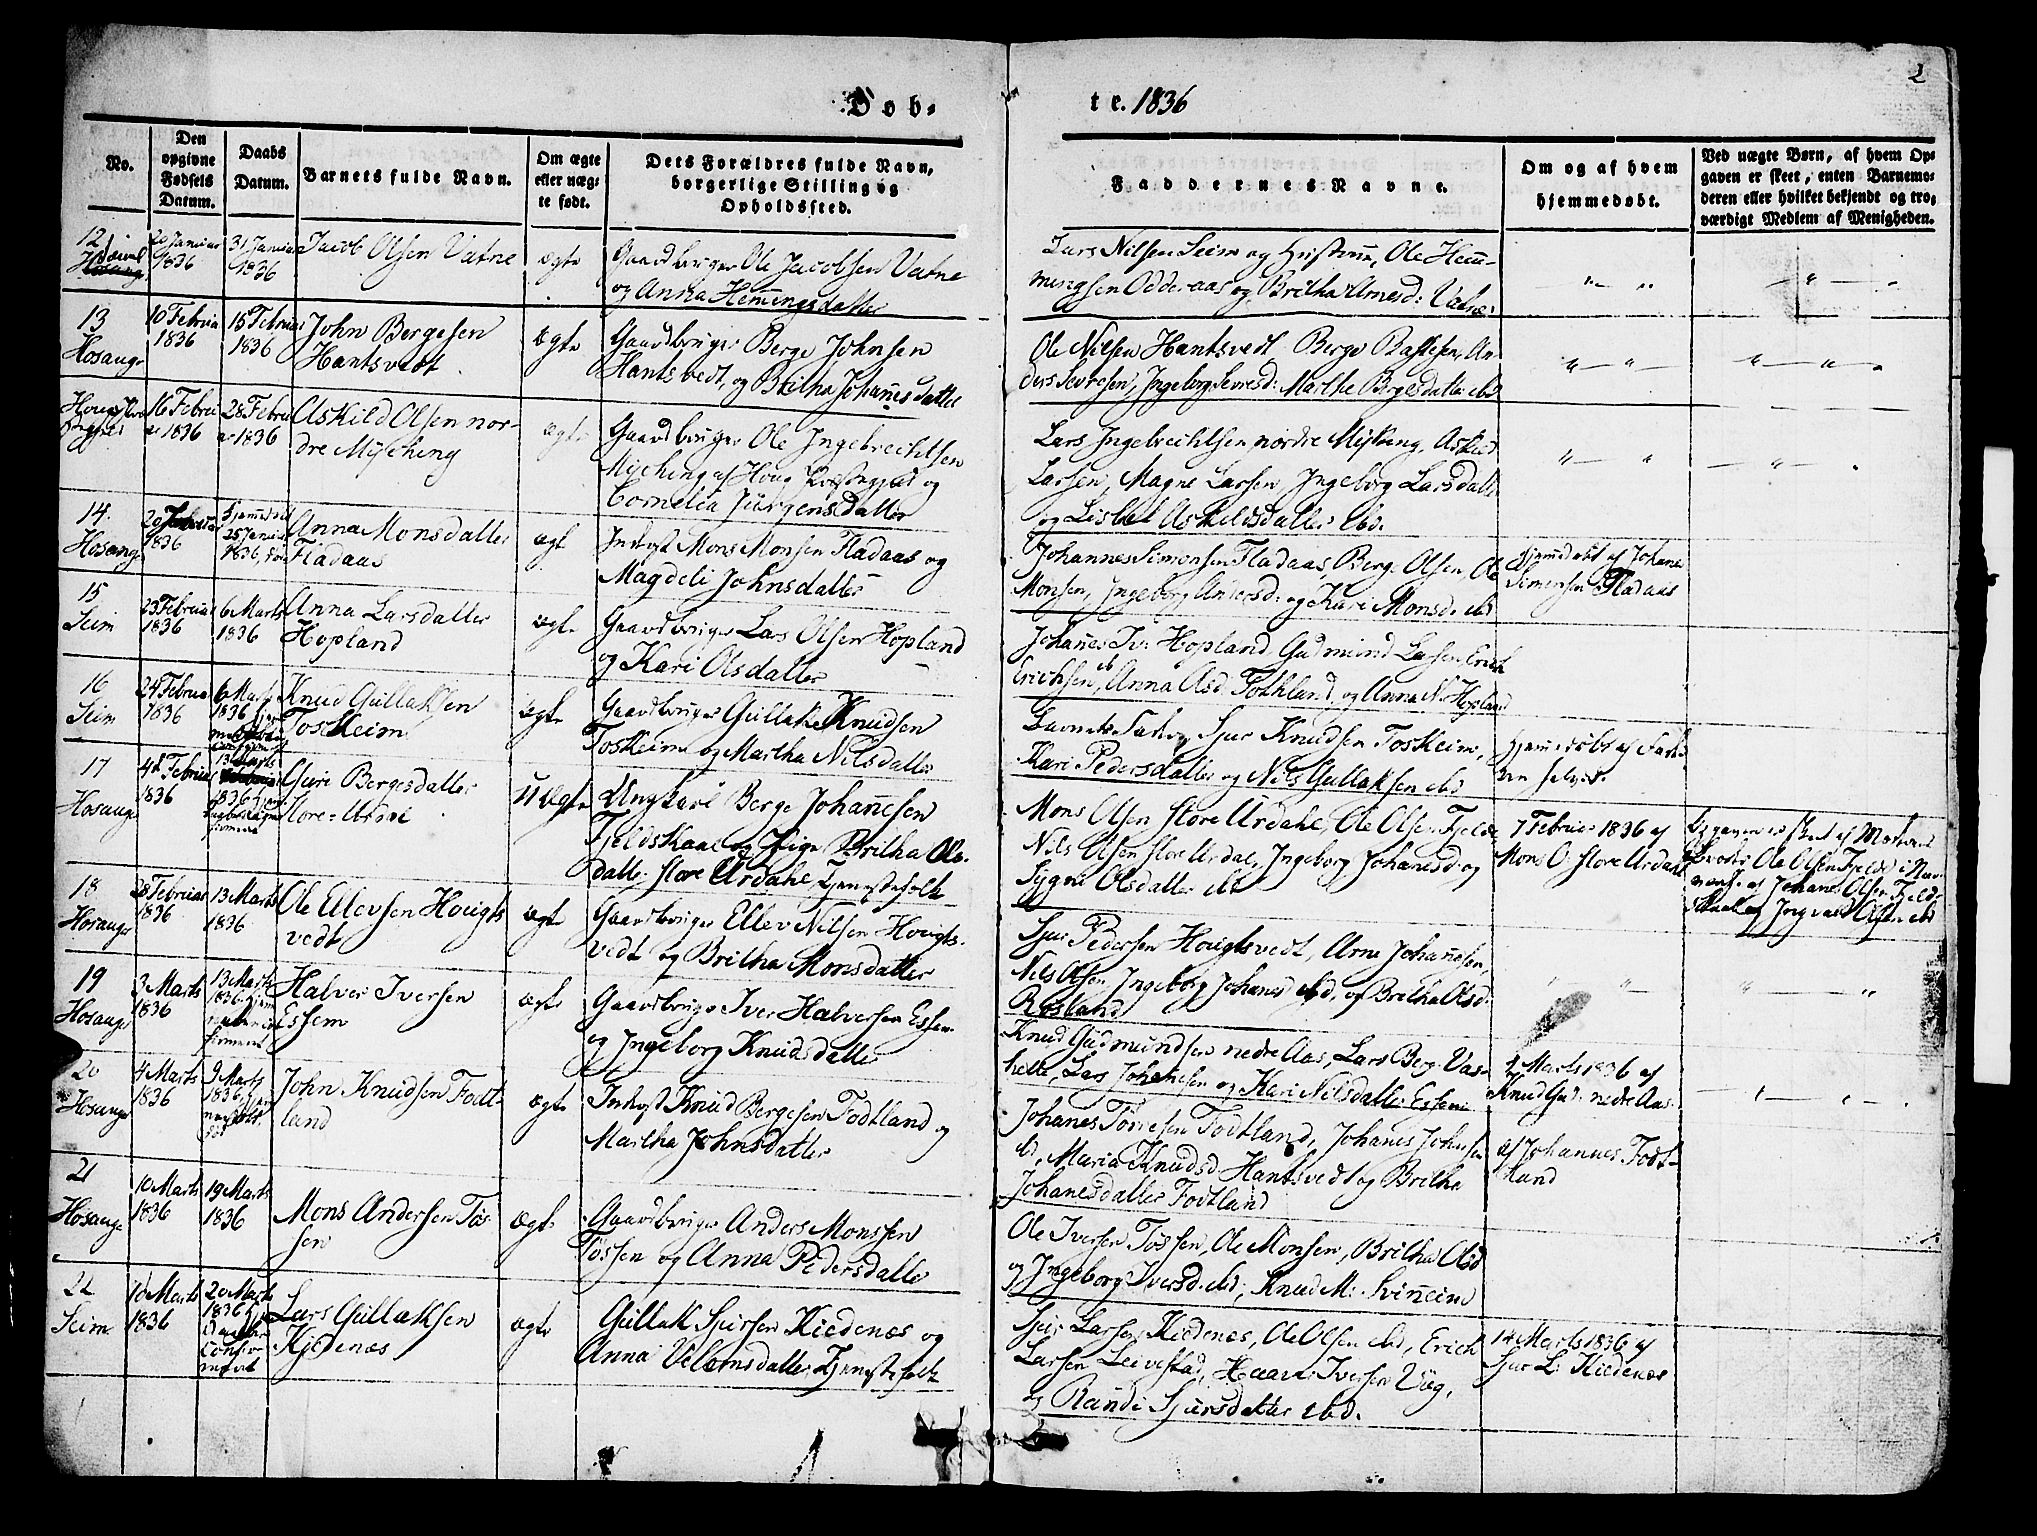 2
Døb-
te. 1836
No.
Den opgivne Fødsels Datum.
Daabs Datum.
Barnets fulde Navn.
Om ægte eller uægte født.
Dets Forældres fulde Navn, borgerlige Stilling og Opholdssted.
Faddernes Navne.
Om og af hvem hjemmedøbt.
Ved uægte Børn, af hvem Opgaven er skeet, enten Barnemoderen eller hvilket bekjendt og troværdigt Medlem af Menigheden.
12
20 Januar 1836
31 Januar 1836
Jacob Olsen Vatne
ægte
Gaardbruger Ole Jacobsen Vatne
og Anna Hemingsdatter
Lars Nilsen Seim og Hustrue, Ole Hem-
mingsen Odderaas og Britha Arnesd: Vatne
13
Hosanger
10 Februar 1836
15 Februar 1836
John Bergesen
Hantsvedt
ægte
Gaardbruger Berge Johnsen
Hantsvedt, og Britha Johannesdatter
Ole Nilsen Hantsvedt, Berge Bastesen, An-
ders Sevresen, Ingeborg Sevresd: Marthe Bergesdatter ebd
16 Februar 1836
28 Februar 1836
Askild Olsen nor-
dre Myching
ægte
Gaardbruger Ole Ingebrechtsen
Myching af Houg Præstegjeld og
Cornelia Jürgensdatter
Lars Ingebrechtsen nordre Myking, Askild
Larsen, Magne Larsen, Ingeborg Larsdatter
og Lisbet Askildsdatter ebd.
14.
Hosanger
20 1836
25 Januar 1836
Anna Monsdatter
Fladaas
ægte
Inderst Mons Monsen Fladaas og
Magdeli Johnsdatter
Johannes Simonsen Fladaas, Berge Olsen, Ole
Monsen, Ingeborg Andersd: og Kari Monsd. ebd
Hjemmedøbt af Johannes
Simonsen Fladaas
15
Seim
23 Februar 1836
6 Marts 1836
Anna Larsdatter
Hopland
ægte
Gaardbruger Lars Olsen Hopland
og Kari Olsdatter
Johannes Iv: Hopland, Gudmund Larsen, Erich
Erichsen, Anna Olsd. Fothland, og Anna N. Hopland
16
Seim
24 Februar 1836
6 Marts 1836
Knud Gullaksen
Toskeim
ægte
Gaardbruger Gullak Knudsen
Toskeim og Martha Nilsdatter
Barnets Fader, Sjur Knudsen Toskeim,
Kari Pedersdatter og Nils Gullaksen ebd
Hjemmedøbt af Fade-
ren selver.
17
Hosanger
4de Februar 1836
13 Marts 1836
Guri Bergesdatter
Store-Urdal
uægte
Ungkarl Berge Johannesen
Fjeldskaal og Pige Britha Ols-
datter store Urdahl, Tjenestefolk
Mons Olsen store Urdahl, Ole Olsen Fjelde
Nils Olsen store Urdal, Ingeborg Johannesd: og
Sygni Olsdatter ebd
7 Februar 1836 af
Mons O. store Urdahl
Opgaven er skeet af Moderens
Broder Ole Olsen Fjelde
af Johannes Olsen Fjeld-
skaal og Olsen ebd
18
Hosanger
28 Februar 1836
13 Marts 1836
Ole Ellevsen Hougts-
vedt
ægte
Gaardbruger Ellev Nilsen Hougts-
vedt og Britha Monsdatter
Sjur Pedersen Hougtsvedt, Arne Johannesen,
Nils Olsen, Ingeborg Johannesd ebd, og Britha Olsd:
Røsland
19
Hosanger
3 Marts 1836
13 Marts 1836
Halver Iversen
Essem
ægte
Gaardbruger Iver Halversen Essem
og Ingeborg Knudsdatter
Knud Gudmundsen nedre Aas, Lars Berg. Vas-
helle, Lars Johannesen og Kari Nilsdatter Essem
4 Marts 1836 af
Knud Gud: nedre Aas.
20
Hosanger
4 Marts 1836
9 Marts 1836
John Knudsen Fodt-
land
ægte
Inderst Knud Bergesen Fodtland og
Martha Johnsdatter
Johanes Torresen Fodtland, Johanes Johnsen
ebd, Maria Knudsd Hantsvedt og Britha
Johanesdatter Fodtland
af Johannes Fodt-
land
21
Hosanger
10 Marts 1836
19 Marts 1836
Mons Andersen Tøs-
sen
ægte
Gaardbruger Anders Monssen
Tøssen og Anna Pedersdatter
Ole Iversen Tøssen, Ole Monsen, Britha Olsd
og Ingeborg Iversd. ebd, Knud M: Svinneim
22
Seim
10 Marts 1836
20 Marts 1836
Lars Gullaksen
Kjedenæs
ægte
Gullak Sjursen Kiedenæs og
Anna Velomsdatter, Tjenestefolk
Sjur Larsen Kiedenæs, Ole Olsen ebd, Erich
Larsen Leivestad, Haavr Iversen Vüg,
og Randi Sjursdatter ebd.
14 Marts 1836 af
Sjur L: Kiedenæs